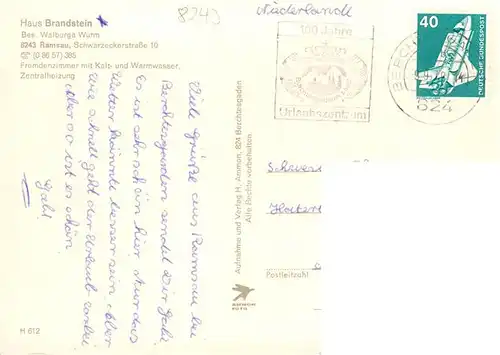 8243
Niederlande
Haus Brandstein
Bes. Walburga Wurm
8243 Ramsau, Schwarzeckerstraße 10
(0 86 57) 385
Fremdenzimmer mit Kalt- und Warmwasser,
Zentralheizung
100 Jahre
Urlaubszentrum
40
DEUTSCHE BUNDESPOST
824
Viele Grüße aus Ramsau bei
Berchtesgaden sendet Dir Gabi
Es ist sehr schön hier nur das
Wetter könnte besser sein. Aber
wie schnell geht der Urlaub vorbei
aber so ist es schön
Gabi
Aufnahme und Verlag H. Ammon, 824 Berchtesgaden
Alle Rechte vorbehalten
Postleitzahl
H 612